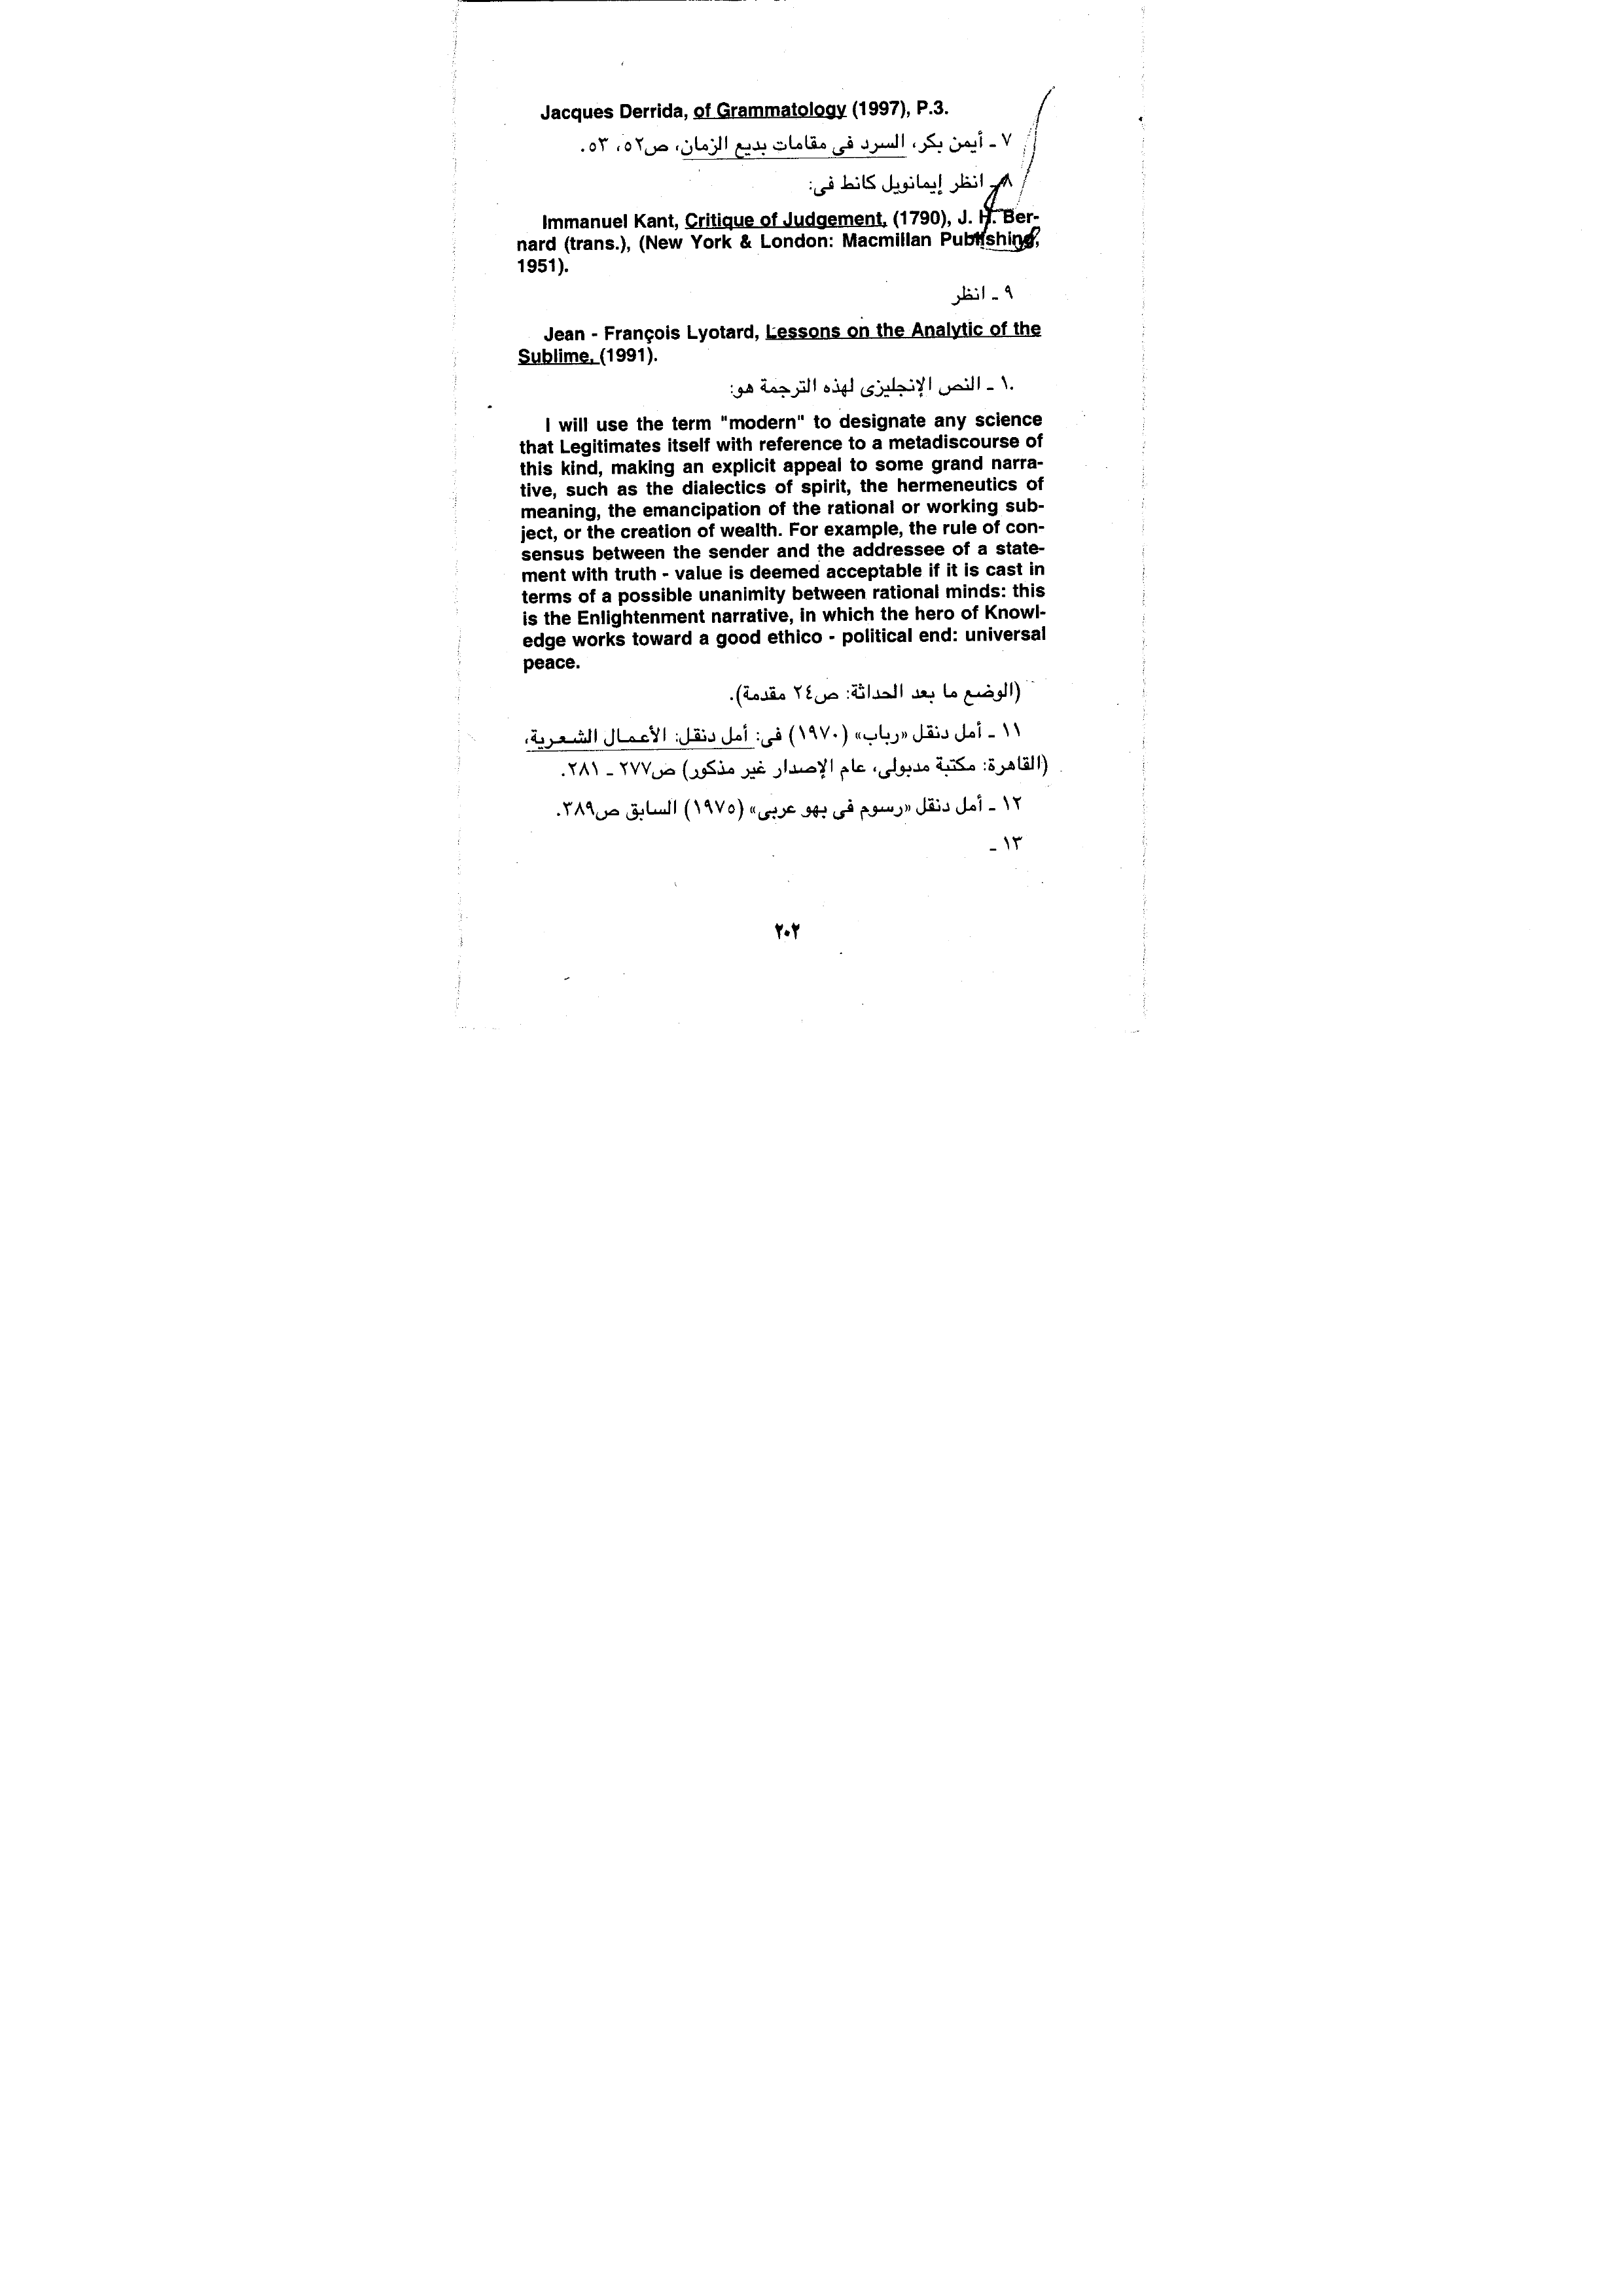 Jacques Derrida, of Grammatology (1997), P.3.
٧ ـ أيمن بكر، السرد فى مقامات بديع الزمان، ص٥٢، ٥٣.
٨ـ انظر إيمانويل كانط فى:
Immanuel Kant, Critique of Judgement, (1790), J. H. Ber-
nard (trans.), (New York & London: Macmillan Publishing,
1951).
٩ ـ انظر
Jean - François Lyotard, Lessons on the Analytic of the
Sublime, (1991).
١٠ ـ النص الإنجليزى لهذه الترجمة هو:
I will use the term "modern" to designate any science
that Legitimates itself with reference to a metadiscourse of
this kind, making an explicit appeal to some grand narra-
tive, such as the dialectics of spirit, the hermeneutics of
meaning, the emancipation of the rational or working sub-
ject, or the creation of wealth. For example, the rule of con-
sensus between the sender and the addressee of a state-
ment with truth - value is deemed acceptable if it is cast in
terms of a possible unanimity between rational minds: this
is the Enlightenment narrative, in which the hero of Knowl-
edge works toward a good ethico - political end: universal
peace.
(الوضع ما بعد الحداثة: ص٢٤ مقدمة).
١١ ـ أمل دنقل «رباب» (١٩٧٠) فى: أمل دنقل: الأعمال الشعرية،
(القاهرة: مكتبة مدبولى، عام الإصدار غير مذكور) ص٢٧٧ ـ ٢٨١.
١٢ ـ أمل دنقل «رسوم فى بهو عربى» (١٩٧٥) السابق ص٣٨٩.
١٣ ـ
٢٠٢